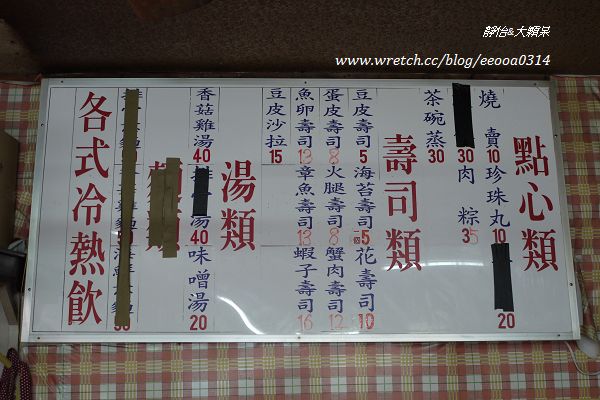 靜怡&大顆呆
www.wretch.cc/blog/eeooa0314
點心類
燒賣10
珍珠丸10
20
30
肉粽35
茶碗蒸30
壽司類
豆皮壽司5
海苔壽司5
花壽司10
蛋皮壽司8
火腿壽司8
蟹肉壽司12
魚卵壽司13
章魚壽司13
蝦子壽司16
豆皮沙拉15
湯類
香菇雞湯40
湯40
味噌湯20
類
各式冷熱飲